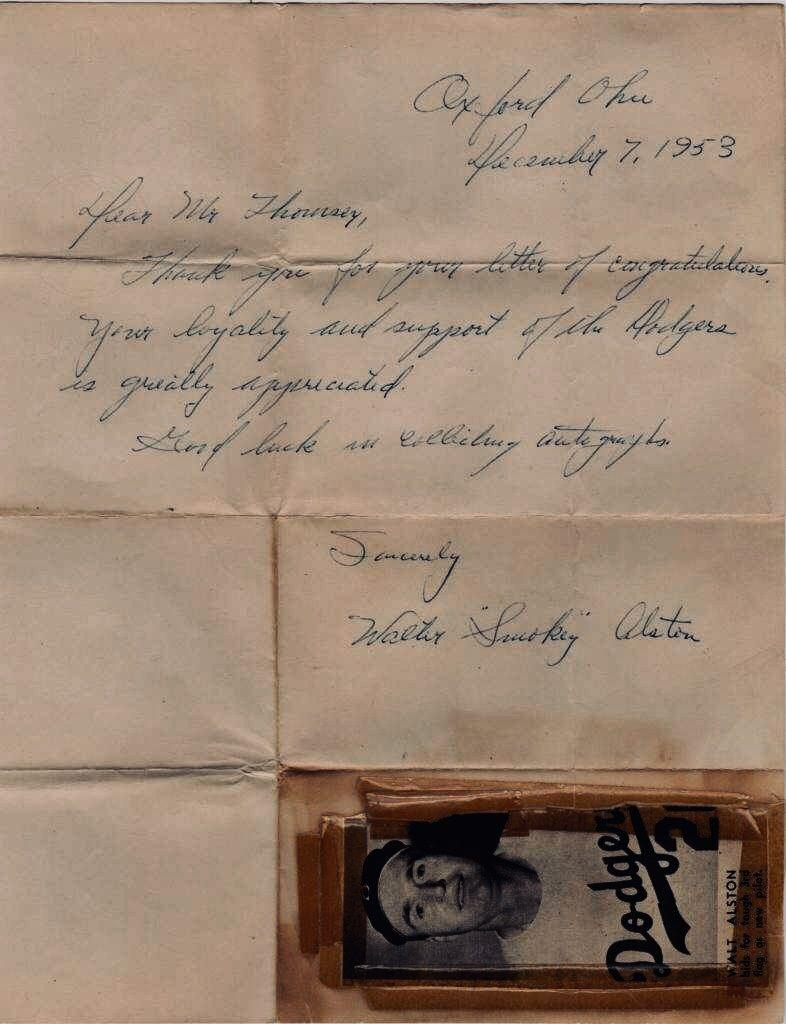 Oxford Ohio
December 7, 1953
Dear Mr Thomsen,
Thank you for your letter of congratulations.
Your loyality and support of the Dodgers
is greatly appreciated.
Good luck in collecting autographs.
Sincerely
Walter "Smokey" Alston
Dodgers
21
WALT ALSTON
bids for tough 3rd
flag as new pilot.